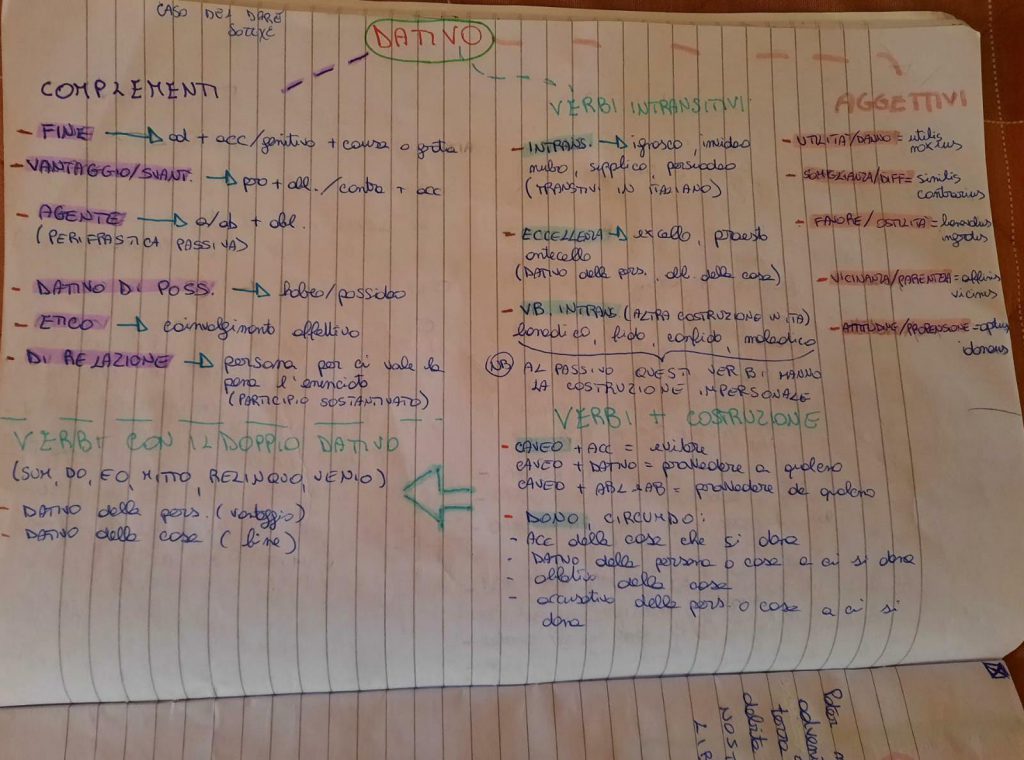 CASO DEL DARE
DATIVO
COMPLEMENTI
- FINE → ad + acc/genitivo + causa o gratia
- VANTAGGIO/SVANT. → pro + abl. / contra + acc
- AGENTE → a/ab + abl.
(PERIFRASTICA PASSIVA)
- DATIVO DI POSS. → habeo/possideo
- ETICO → coinvolgimento affettivo
- DI RELAZIONE → persona per cui vale la
pena l'enunciato
(PARTICIPIO SOSTANTIVATO)
VERBI CON IL DOPPIO DATIVO
(SUM, DO, EO, MITTO, RELINQUO, VENIO)
- DATIVO della pers. (vantaggio)
- DATIVO della cosa (fine)
VERBI INTRANSITIVI
- INTRANS. → ignosco, invideo
nubo, supplico, persuadeo
(TRANSITIVI IN ITALIANO)
- ECCELLENZA → excello, praesto
antecello
(DATIVO della pers. abl. della cosa)
- VB. INTRANS (ALTRA COSTRUZIONE IN ITA)
benedico, fido, confido, maledico
NB AL PASSIVO QUESTI VERBI HANNO
LA COSTRUZIONE IMPERSONALE
VERBI + COSTRUZIONE
- CAVEO + ACC = evitare
CAVEO + DATIVO = provvedere a qualcuno
CAVEO + ABL + AB = provvedere da qualcuno
- DONO, CIRCUMDO:
- ACC della cosa che si dona
- DATIVO della persona o cosa a cui si dona
- ablativo della cosa
- accusativo della pers. o cosa a cui si
dona
AGGETTIVI
- UTILITÀ/DANNO = utilis
noxius
- SOMIGLIANZA/DIFF = similis
contrarius
- FAVORE/OSTILITÀ =
- VICINANZA/PARENTELA = affinis
vicinus
- ATTITUDINE/PROPENSIONE = aptus
idoneus
NOST